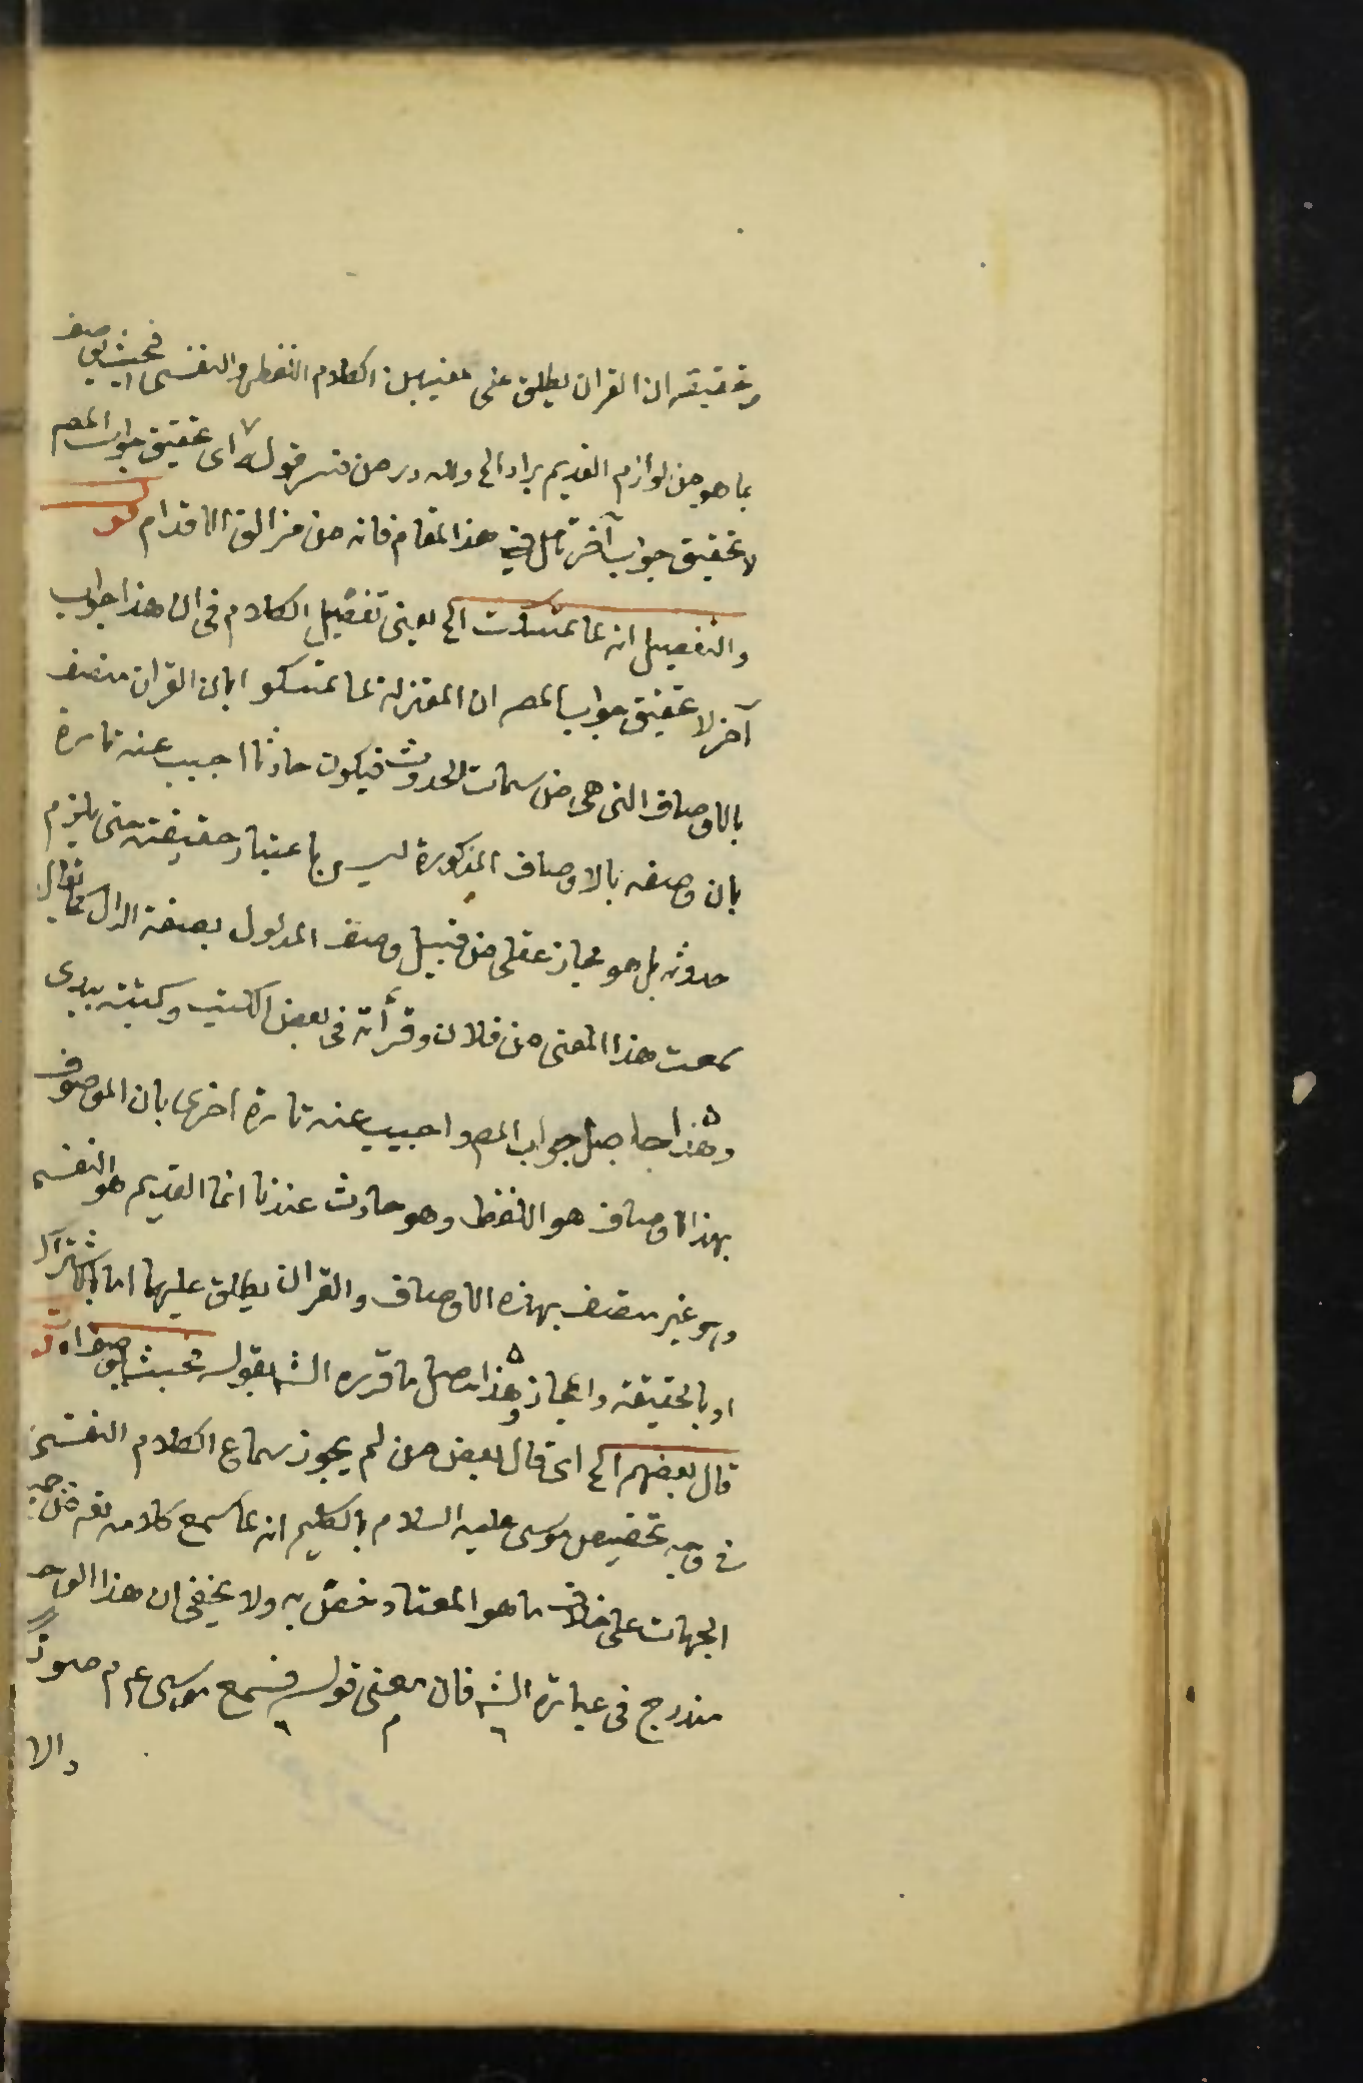 وتحقيقه ان القران يطلق على معنيين الكلام اللفظى والنفسى فحيث يوصف
بما هو من لوازم القديم يراد الخ ولله در من فسر قوله اى تحقيق جواب المص
لا تحقيق جواب آخر تأمل فى هذا المقام فانه من مزالق الاقدام قوله
والتفصيل انه لما تمسكت الخ يعنى تفصيل الكلام فى ان هذا جواب
آخر لا تحقيق جواب المص ان المعتزلة لما تمسكوا بان القران متصف
بالاوصاف التى هى من سمات الحدوث فيكون حادثا اجيب عنه تارة
بان وصفه بالاوصاف المذكورة ليس باعتبار حقيقته حتى يلزم
حدوثه بل هو مجاز عقلى من قبيل وصف المدلول بصفة الدال كما يقال
سمعت هذا المعنى من فلان وقرأته فى بعض الكتب وكتبته بيدى
وهذا حاصل جواب المص واجيب عنه تارة اخرى بان الموصوف
بهذه الاوصاف هو اللفظ وهو حادث عندنا انما القديم هو النفسى
وهو غير متصف بهذه الاوصاف والقران يطلق عليهما اما بالاشتراك
او بالحقيقة والمجاز وهذا حاصل ما قرره الش بقوله فحيث يوصف اه قوله
قال بعضهم الخ اى قال بعض من لم يجوز سماع الكلام النفسى
فى وجه تخصيص موسى عليه السلام بالكليم انه لما سمع كلامه تع من جميع
الجهات على خلاف ما هو المعتاد خص به ولا يخفى ان هذا الوجه
مندرج فى عبارة الش فان معنى قوله فسمع موسى عم صوتا
والا